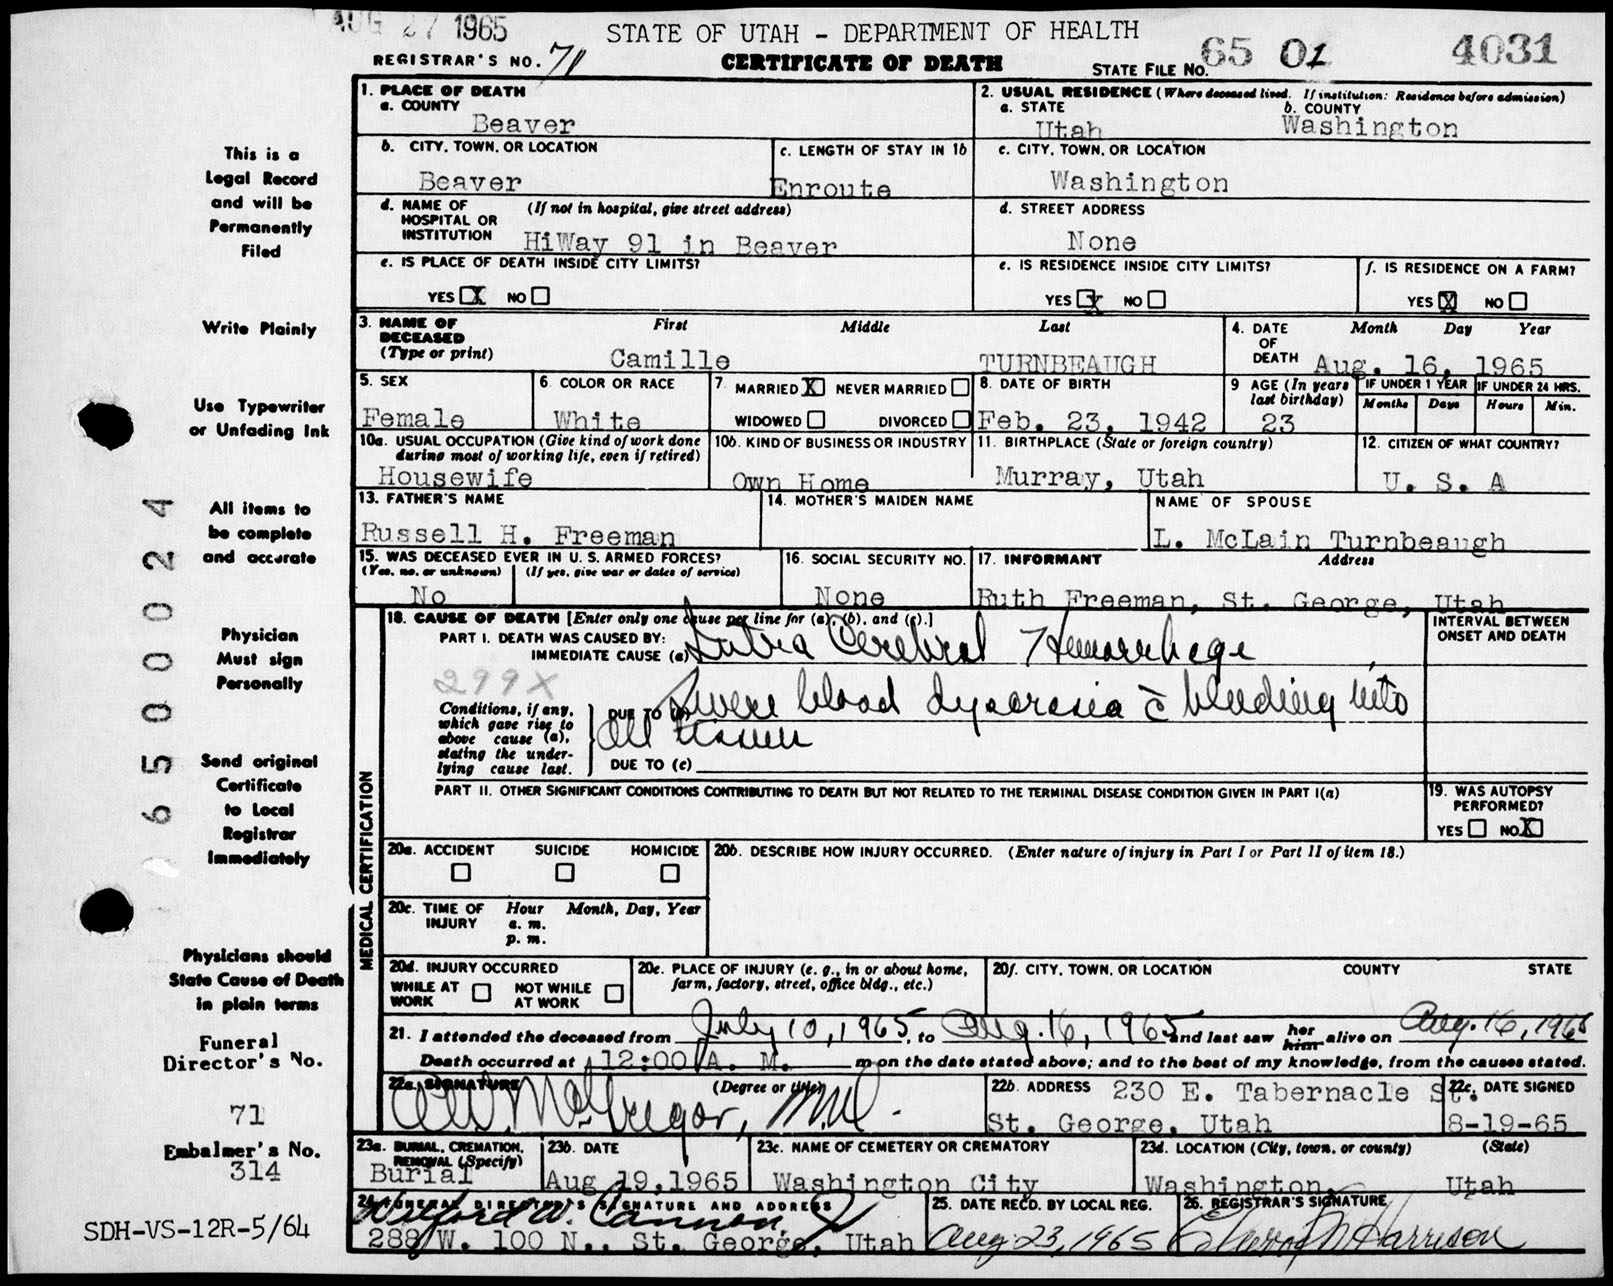 AUG 27 1965
STATE OF UTAH - DEPARTMENT OF HEALTH
REGISTRAR'S NO. 71
CERTIFICATE OF DEATH
STATE FILE NO. 65 01 4031
1. PLACE OF DEATH
a. COUNTY
Beaver
2. USUAL RESIDENCE (Where deceased lived. If institution: Residence before admission)
a. STATE b. COUNTY
Utah Washington
b. CITY, TOWN, OR LOCATION
Beaver
c. LENGTH OF STAY IN 1b
Enroute
c. CITY, TOWN, OR LOCATION
Washington
d. NAME OF HOSPITAL OR INSTITUTION (If not in hospital, give street address)
HiWay 91 in Beaver
d. STREET ADDRESS
None
e. IS PLACE OF DEATH INSIDE CITY LIMITS?
YES X NO
e. IS RESIDENCE INSIDE CITY LIMITS?
YES X NO
f. IS RESIDENCE ON A FARM?
YES X NO
3. NAME OF DECEASED (Type or print) First Middle Last
Camille TURNBEAUGH
4. DATE OF DEATH Month Day Year
Aug. 16, 1965
5. SEX
Female
6. COLOR OR RACE
White
7. MARRIED X NEVER MARRIED
WIDOWED DIVORCED
8. DATE OF BIRTH
Feb. 23, 1942
9 AGE (In years last birthday)
23
IF UNDER 1 YEAR IF UNDER 24 HRS.
Months Days Hours Min.
10a. USUAL OCCUPATION (Give kind of work done during most of working life, even if retired)
Housewife
10b. KIND OF BUSINESS OR INDUSTRY
Own Home
11. BIRTHPLACE (State or foreign country)
Murray, Utah
12. CITIZEN OF WHAT COUNTRY?
U. S. A
13. FATHER'S NAME
Russell H. Freeman
14. MOTHER'S MAIDEN NAME
NAME OF SPOUSE
L. McLain Turnbeaugh
15. WAS DECEASED EVER IN U. S. ARMED FORCES?
(Yes, no, or unknown) (If yes, give war or dates of service)
No
16. SOCIAL SECURITY NO.
None
17. INFORMANT Address
Ruth Freeman, St. George, Utah
MEDICAL CERTIFICATION
18. CAUSE OF DEATH [Enter only one cause per line for (a), (b), and (c).]
PART I. DEATH WAS CAUSED BY:
IMMEDIATE CAUSE (a) Intra Cerebral Hemorrhage
INTERVAL BETWEEN ONSET AND DEATH
299X
Conditions, if any, which gave rise to above cause (a), stating the underlying cause last.
DUE TO (b) Severe blood dyscrasia c̄ bleeding into
all tissues
DUE TO (c)
PART II. OTHER SIGNIFICANT CONDITIONS CONTRIBUTING TO DEATH BUT NOT RELATED TO THE TERMINAL DISEASE CONDITION GIVEN IN PART I(a)
19. WAS AUTOPSY PERFORMED?
YES NO X
20a. ACCIDENT SUICIDE HOMICIDE
20b. DESCRIBE HOW INJURY OCCURRED. (Enter nature of injury in Part I or Part II of item 18.)
20c. TIME OF INJURY Hour Month, Day, Year
a. m.
p. m.
20d. INJURY OCCURRED
WHILE AT WORK NOT WHILE AT WORK
20e. PLACE OF INJURY (e. g., in or about home, farm, factory, street, office bldg., etc.)
20f. CITY, TOWN, OR LOCATION COUNTY STATE
21. I attended the deceased from July 10, 1965, to Aug. 16, 1965 and last saw her him alive on Aug. 16, 1965
Death occurred at 12:00 A. M. m on the date stated above; and to the best of my knowledge, from the causes stated.
22a. SIGNATURE (Degree or title)
McGregor, M.D.
22b. ADDRESS 230 E. Tabernacle St.
St. George, Utah
22c. DATE SIGNED
8-19-65
23a. BURIAL, CREMATION, REMOVAL (Specify)
Burial
23b. DATE
Aug 19, 1965
23c. NAME OF CEMETERY OR CREMATORY
Washington City
23d. LOCATION (City, town, or county) (State)
Washington, Utah
24. FUNERAL DIRECTOR'S SIGNATURE AND ADDRESS
W. Cannon
288 W. 100 N., St. George, Utah
25. DATE RECD. BY LOCAL REG.
Aug 23, 1965
26. REGISTRAR'S SIGNATURE
Harrison
This is a
Legal Record
and will be
Permanently
Filed
Write Plainly
Use Typewriter
or Unfading Ink
All items to
be complete
and accurate
Physician
Must sign
Personally
Send original
Certificate
to Local
Registrar
Immediately
Physicians should
State Cause of Death
in plain terms
Funeral
Director's No.
71
Embalmer's No.
314
SDH-VS-12R-5/64
65 00024